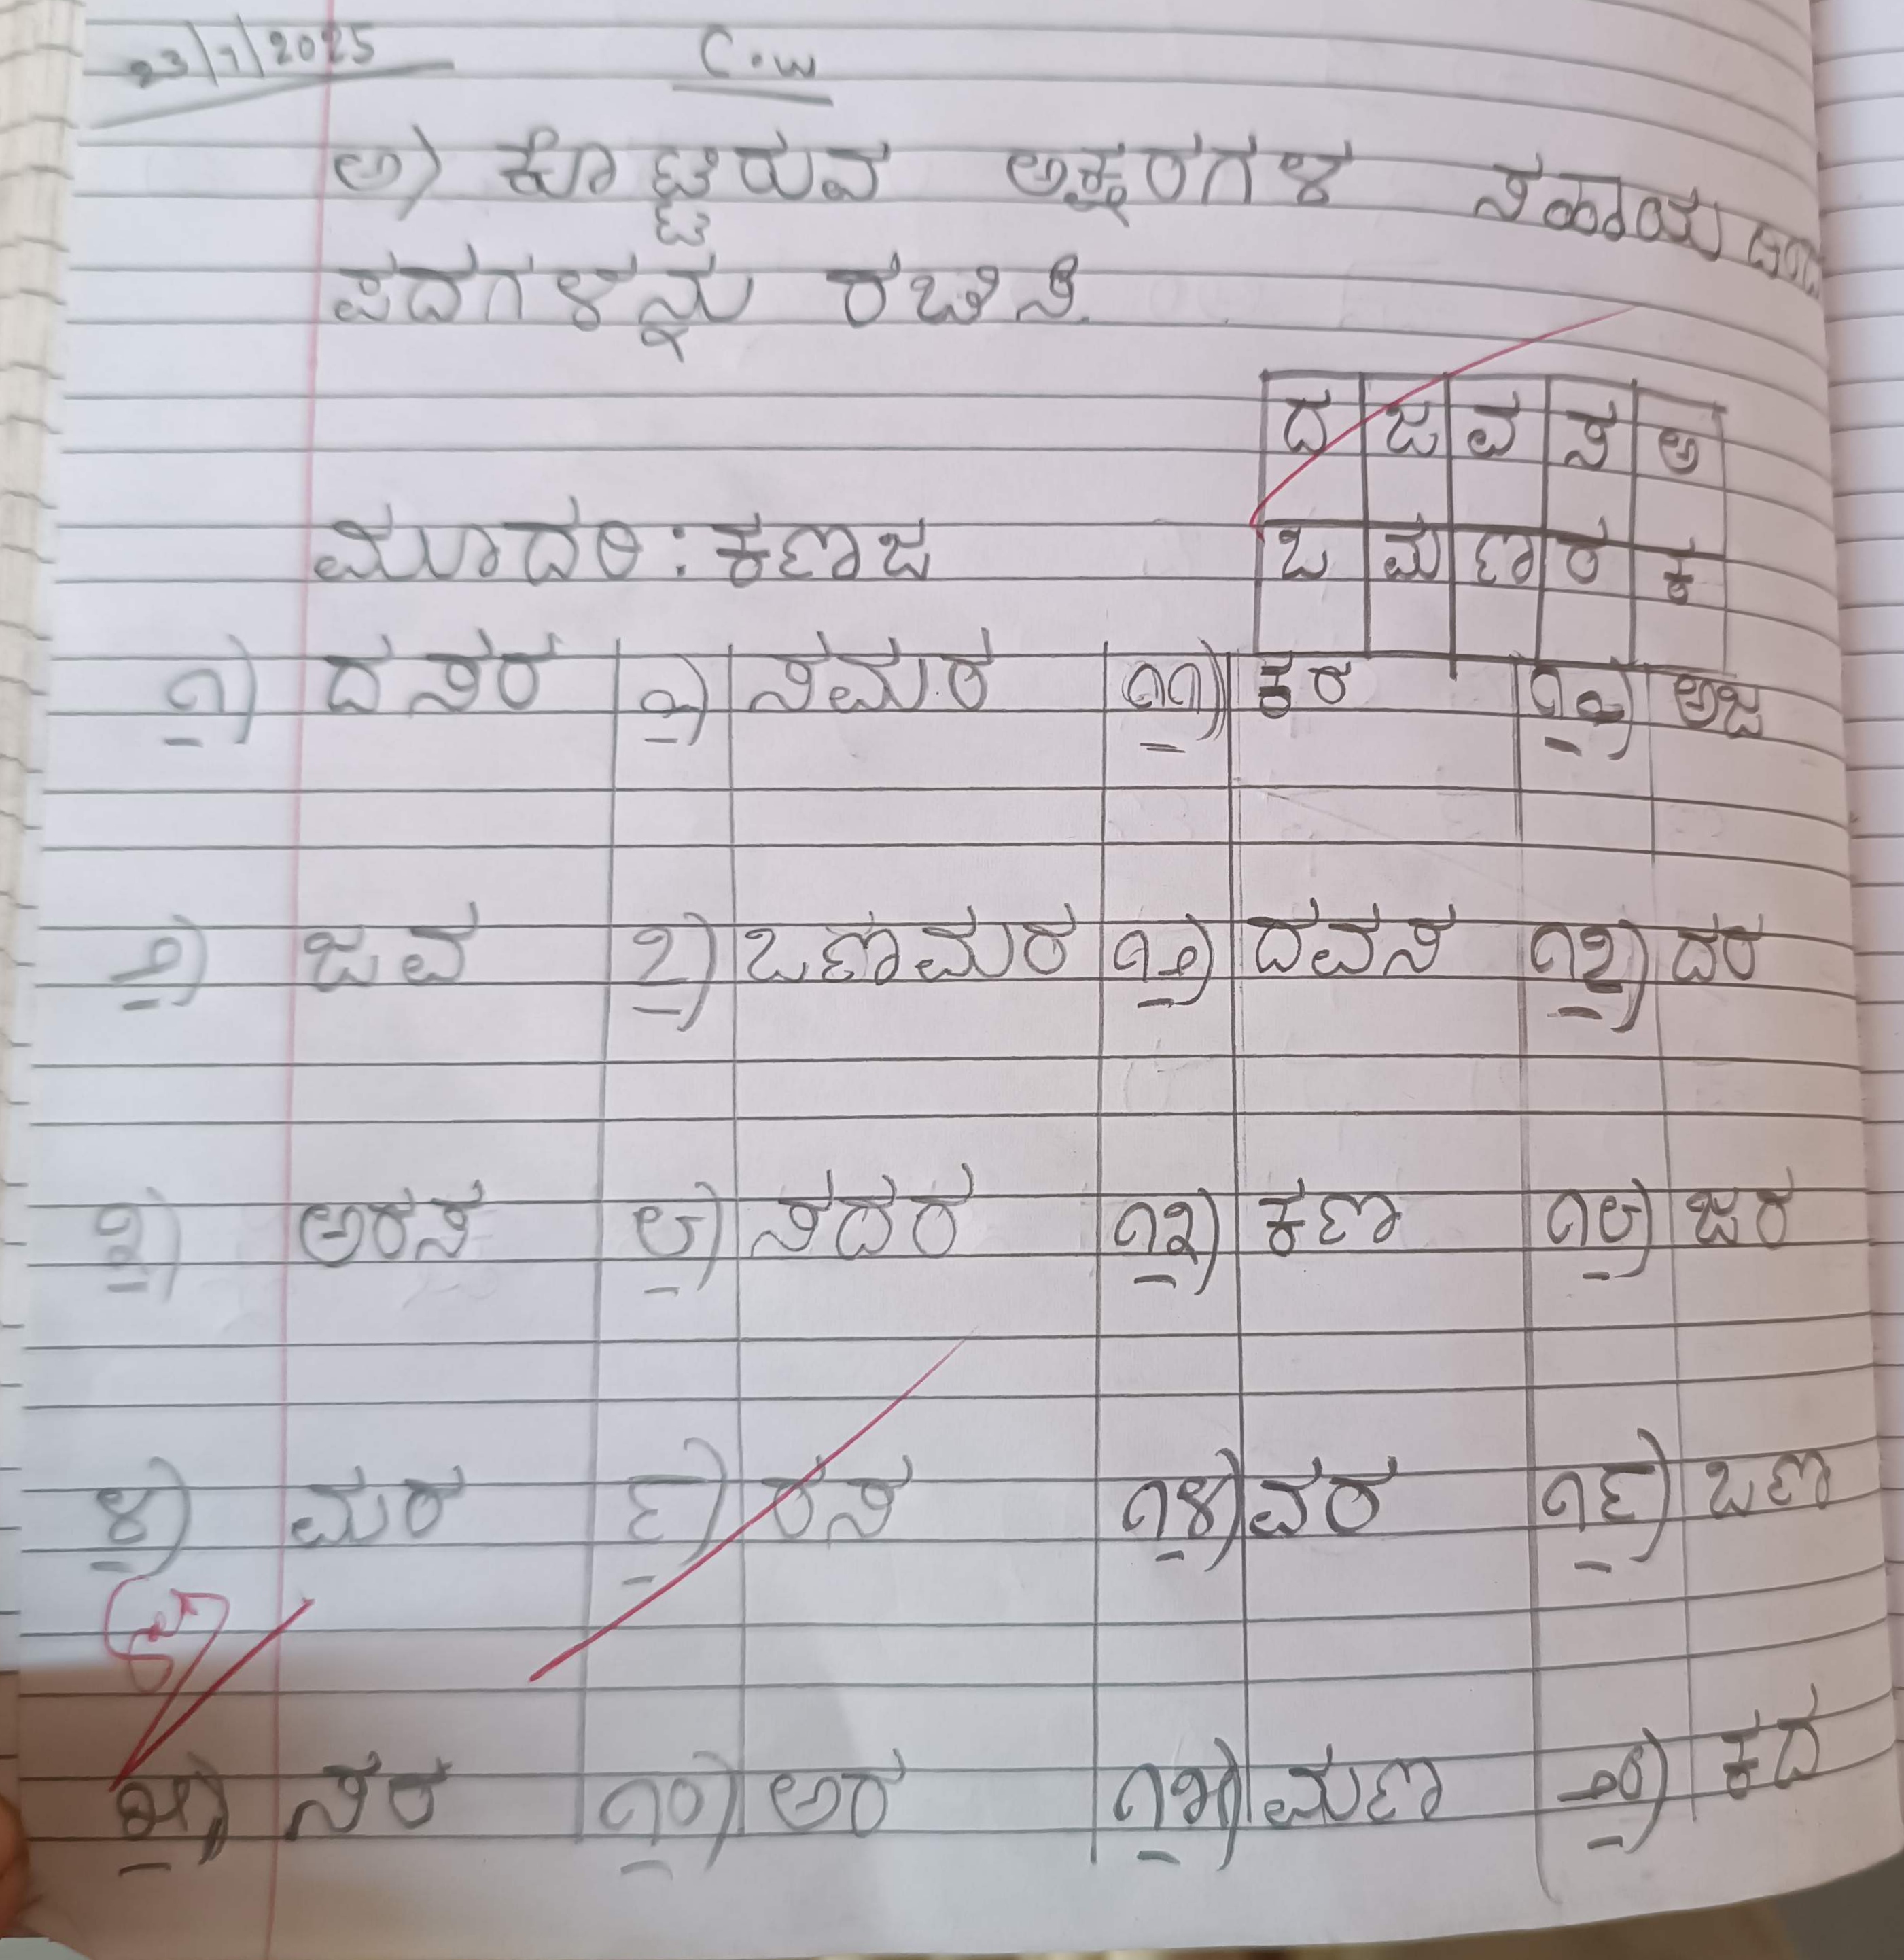 23/7/2025 C.W
ಅ) ಕೊಟ್ಟಿರುವ ಅಕ್ಷರಗಳ ಸಹಾಯದಿಂದ
ಪದಗಳನ್ನು ರಚಿಸಿ.
ದ ಜ ವ ಸ ಅ
ಮಾದರಿ : ಕಣಜ ಒ ಮ ಣ ರ ಕ
೧) ದಸರ ೬) ಸಮರ ೧೧) ಕರ ೧೬) ಅಜ
೨) ಜವ ೭) ಒಣಮರ ೧೨) ದವಸ ೧೭) ದರ
೩) ಅರಸ ೮) ಸದರ ೧೩) ಕಣ ೧೮) ಜರ
೪) ಮರ ೯) ರಸ ೧೪) ವರ ೧೯) ಒಣ
೫) ಸರ ೧೦) ಅರ ೧೫) ಮಣ ೨೦) ಕದ